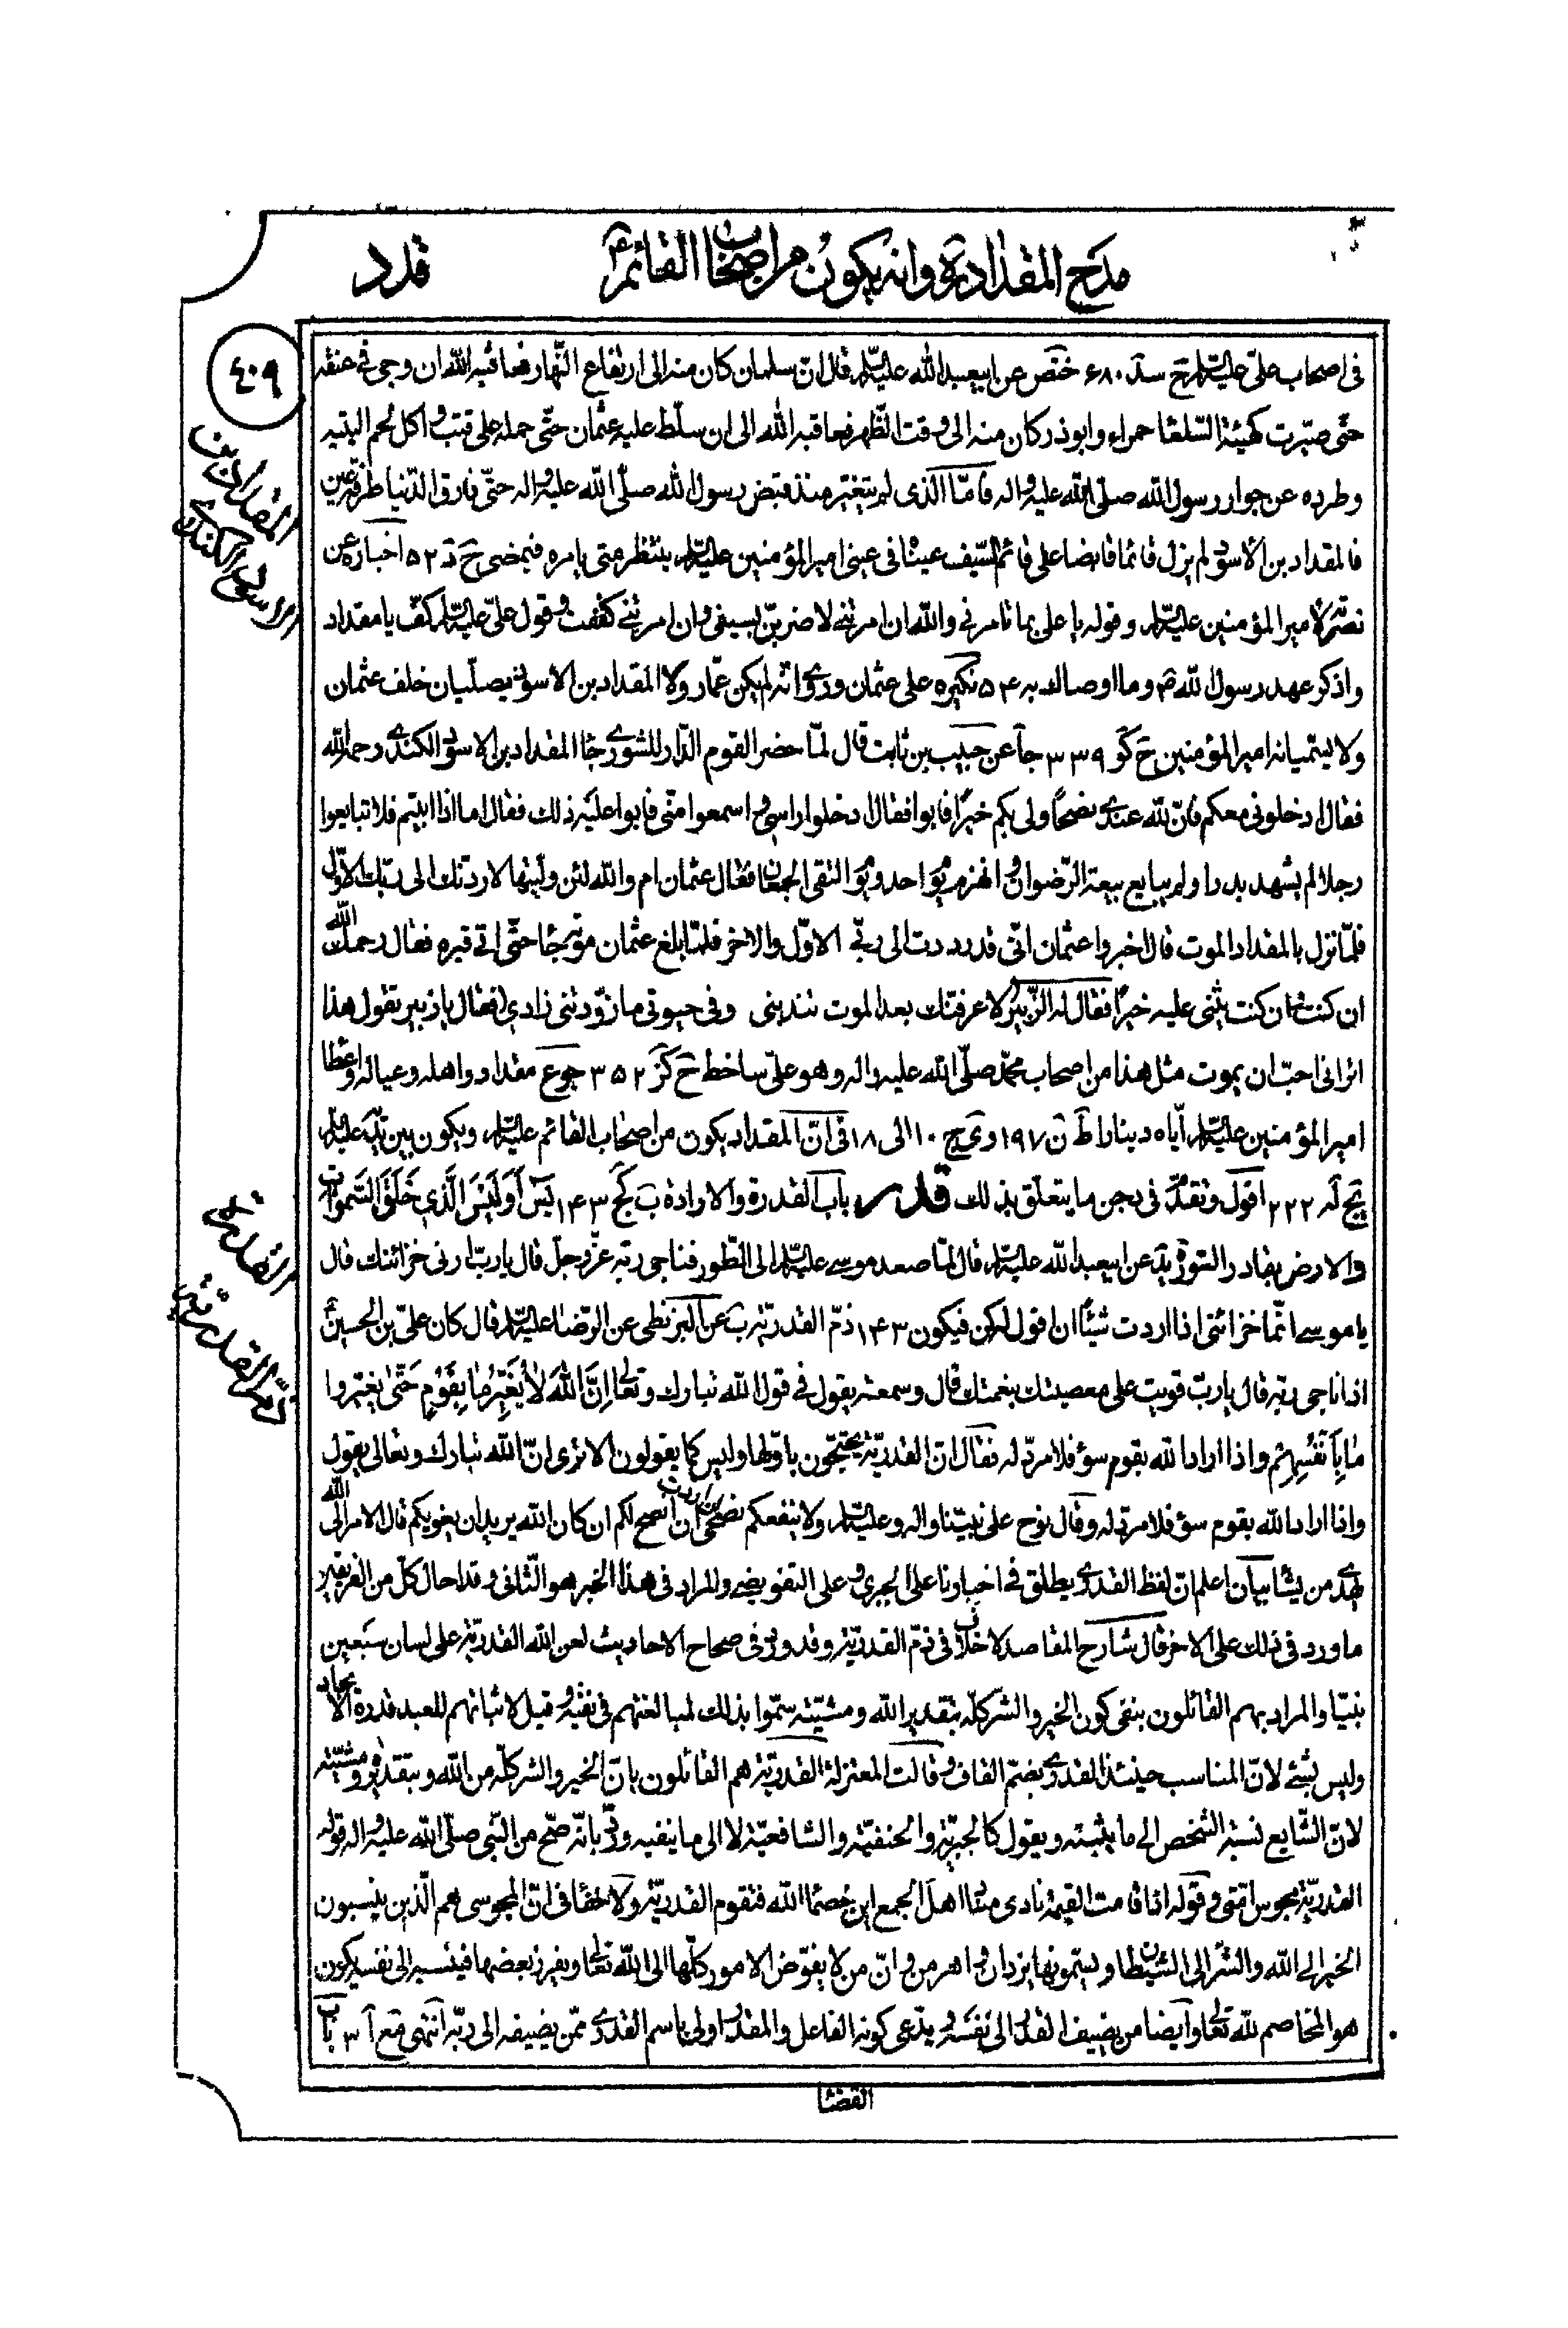 مدح المقداد ره وانه يكون من اصحاب القائم ع
قدر
٤٠٩
المقداد بن
الاسود الكندي
فى اصحاب على عليه السلام ح سد ٦٨٠ ختص عن ابيعبد الله عليه السلام قال ان سلمان كان منه الى ارتفاع النهار فعاقبه الله ان وجى فى عنقه
حتى صيرت كهيئة السلعة حمراء وابوذر كان منه الى وقت الظهر فعاقبه الله الى ان سلط عليه عثمان حتى حمله على قتب و اكل لحم اليتيه
وطرده عن جوار رسول الله صلى الله عليه واله فاما الذى لم يتغير منذ قبض رسول الله صلى الله عليه واله حتى فارق الدنيا طرفة عين
فالمقداد بن الاسود لم يزل قائما قابضا على قائم السيف عيناه فى عينى امير المؤمنين عليه السلام ينتظر متى يامره فيمضى ح ٥٢ اخباره عن
نصرته لامير المؤمنين عليه السلام وقوله يا على بما تامرنى والله ان امرتنى لاضربن بسيفى وان امرتنى كففت وقول على عليه السلام كف يا مقداد
واذكر عهد رسول الله ص وما اوصاك به ٥٤ نكيره على عثمان وروى انه لم يكن عمار ولا المقداد بن الاسود يصليان خلف عثمان
ولا يسميانه امير المؤمنين ح كو ٣٣٩ جا عن حبيب بن ثابت قال لما حضر القوم الدار للشورى جاء المقداد بن الاسود الكندى رحمه الله
فقال ادخلونى معكم فان لله عندى نصحا ولى بكم خيرا فابوا فقال ادخلوا راسى و اسمعوا منى فابوا عليه ذلك فقال اما اذا ابيتم فلا تبايعوا
رجلا لم يشهد بدرا ولم يبايع بيعة الرضوان و انهزم يوم احد ويوم التقى الجمعان فقال عثمان ام والله لئن وليتها لاردنك الى ربك الاول
فلما نزل بالمقداد الموت قال اخبروا عثمان انى قد رددت الى ربى الاول والاخر فلما بلغ عثمان موته جاء حتى اتى قبره فقال رحمك الله
ان كنت و ان كنت يثنى عليه خيرا فقال له الزبير لا عرفتك بعد الموت تندبنى وفى حيوتى ما زودتنى زادى فقال يا زبير تقول هذا
اترانى احب ان يموت مثل هذا من اصحاب محمد صلى الله عليه واله وهو على ساخط ح كز ٣٥٢ جوع مقداد واهله وعياله واعطاء
امير المؤمنين عليه السلام اياه دينارا ط ن ١٩٧ وى ج ١٠ الى ١٨ فى ان المقداد يكون من اصحاب القائم عليه السلام ويكون بين يديه عليه السلام
يج له ٢٢٢ اقول وتقدم فى بحن ما يتعلق بذلك قدر باب القدرة والارادة ب كج ١٤٣ يس أوليس الذي خلق السموات
والارض بقادر السورة يد عن ابيعبد الله عليه السلام قال لما صعد موسى عليه السلام الى الطور فناجى ربه عز وجل قال يا رب ارنى خزائنك قال
يا موسى انما خزائنى اذا اردت شيئا ان اقول له كن فيكون ١٤٣ ذم القدرية ب عن البزنطى عن الرضا عليه السلام قال كان على بن الحسين ع
اذا ناجى ربه قال يا رب قويت على معصيتك بنعمتك قال وسمعته يقول فى قول الله تبارك وتعالى ان الله لا يغير ما بقوم حتى يغيروا
ما بأنفسهم واذا اراد الله بقوم سوء فلا مرد له فقال ان القدرية يحتجون باولها وليس كما يقولون الا ترى ان الله تبارك وتعالى يقول
واذا اراد الله بقوم سوء فلا مرد له وقال نوح على نبينا واله وعليه السلام ولا ينفعكم نصحى ان اردت ان انصح لكم ان كان الله يريد ان يغويكم قال الامر الى الله
يهدى من يشاء بيان اعلم ان لفظ القدرى يطلق فى اخبارنا على الجبرى و على التفويضى والمراد فى هذا الخبر هو الثانى وقد احال كل من الفريقين
ما ورد فى ذلك على الاخر قال شارح المقاصد لا خلاف فى ذم القدرية وقد ورد فى صحاح الاحاديث لعن الله القدرية على لسان سبعين
نبيا والمراد بهم القائلون بنفى كون الخير والشر كله بتقدير الله ومشيته سموا بذلك لمبالغتهم فى نفيه و قيل لاثباتهم للعبد قدرة الايجاد
وليس بشئ لان المناسب حينئذ القدرى بضم القاف و قالت المعتزلة القدرية هم القائلون بان الخير والشر كله من الله وبتقديره ومشيته
لان الشايع نسبة الشخص الى ما يثبته ويقول كالجبرية والحنفية والشافعية لا الى ما ينفيه ورد بانه صح من النبى صلى الله عليه واله قوله
القدرية مجوس امتى وقوله اذا قامت القيمة نادى مناد اهل الجمع اين خصماء الله فتقوم القدرية ولا خفاء فى ان المجوسى هم الذين ينسبون
الخير الى الله والشر الى الشيطان ويسمونهما يزدان و اهرمن وان من لا يفوض الامور كلها الى الله تعالى ويفرز بعضها فينسبه الى نفسه يكون
هو المخاصم لله تعالى وايضا من يضيف القدر الى نفسه و يدعى كونه الفاعل والمقدر اولى باسم القدرى ممن يضيفه الى ربه انتهى مع آ ٣ باب
ذم القدرية
القضاء